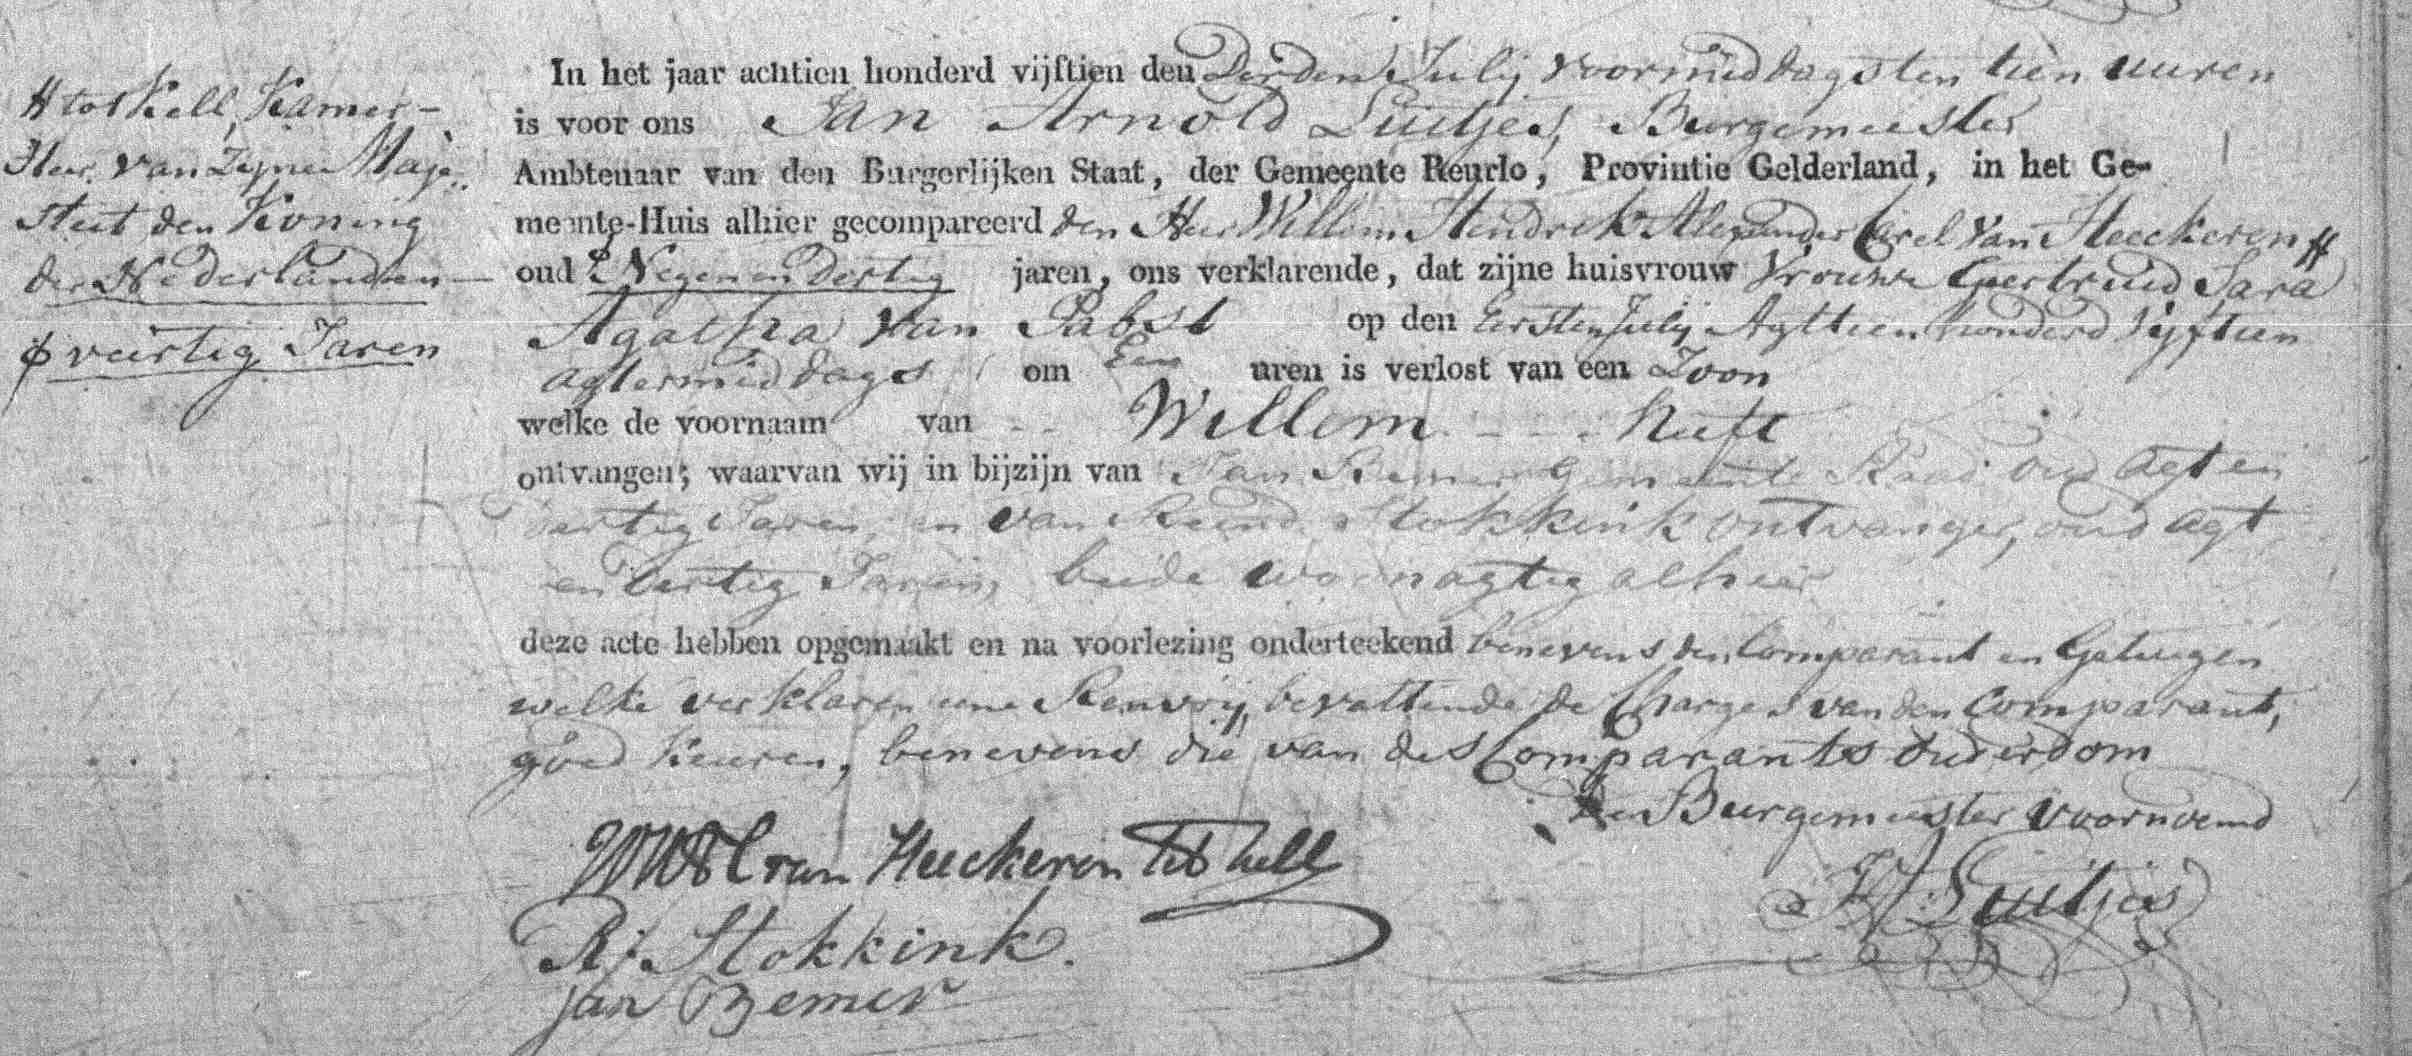 # tot Kell, Kamer-
Heer van Zijner Maje-
steit den Koning
der Nederlanden
ϕ veertig Jaren
In het jaar achtien honderd vijftien den Derden Julij voormiddags ten tien uuren
is voor ons Jan Arnold Luitjes, Burgemeester
Ambtenaar van den Burgerlijken Staat, der Gemeente Reurlo, Provintie Gelderland, in het Ge-
meente-Huis alhier gecompareerd den Heer Willem Hendrik Alexander Carel van Heeckeren #
oud ϕ Negen en dertig jaren, ons verklarende, dat zijne huisvrouw Vrouwe Geertruid Sara
Agatha van Pabst op den Eersten Julij Agttien honderd Vijftien
agtermiddags om Een uren is verlost van een Zoon
welke de voornaam van Willem heeft
ontvangen; waarvan wij in bijzijn van Jan Bemer Gemeente Raad oud agt en
Jaren, en van Stokkink ontvanger, oud agt
en Jaren, beide woonagtig alhier
deze acte hebben opgemaakt en na voorlezing onderteekend benevens den Comparant en Getuigen
welke verklaren eene Renvoij, bevattende de Charges van den Comparant,
goed keuren, benevens die van des Comparants Ouderdom
Den Burgemeester voornoemd
WHAC van Heeckeren tot Kell
JA Luitjes
RJ Stokkink.
Jan Bemer